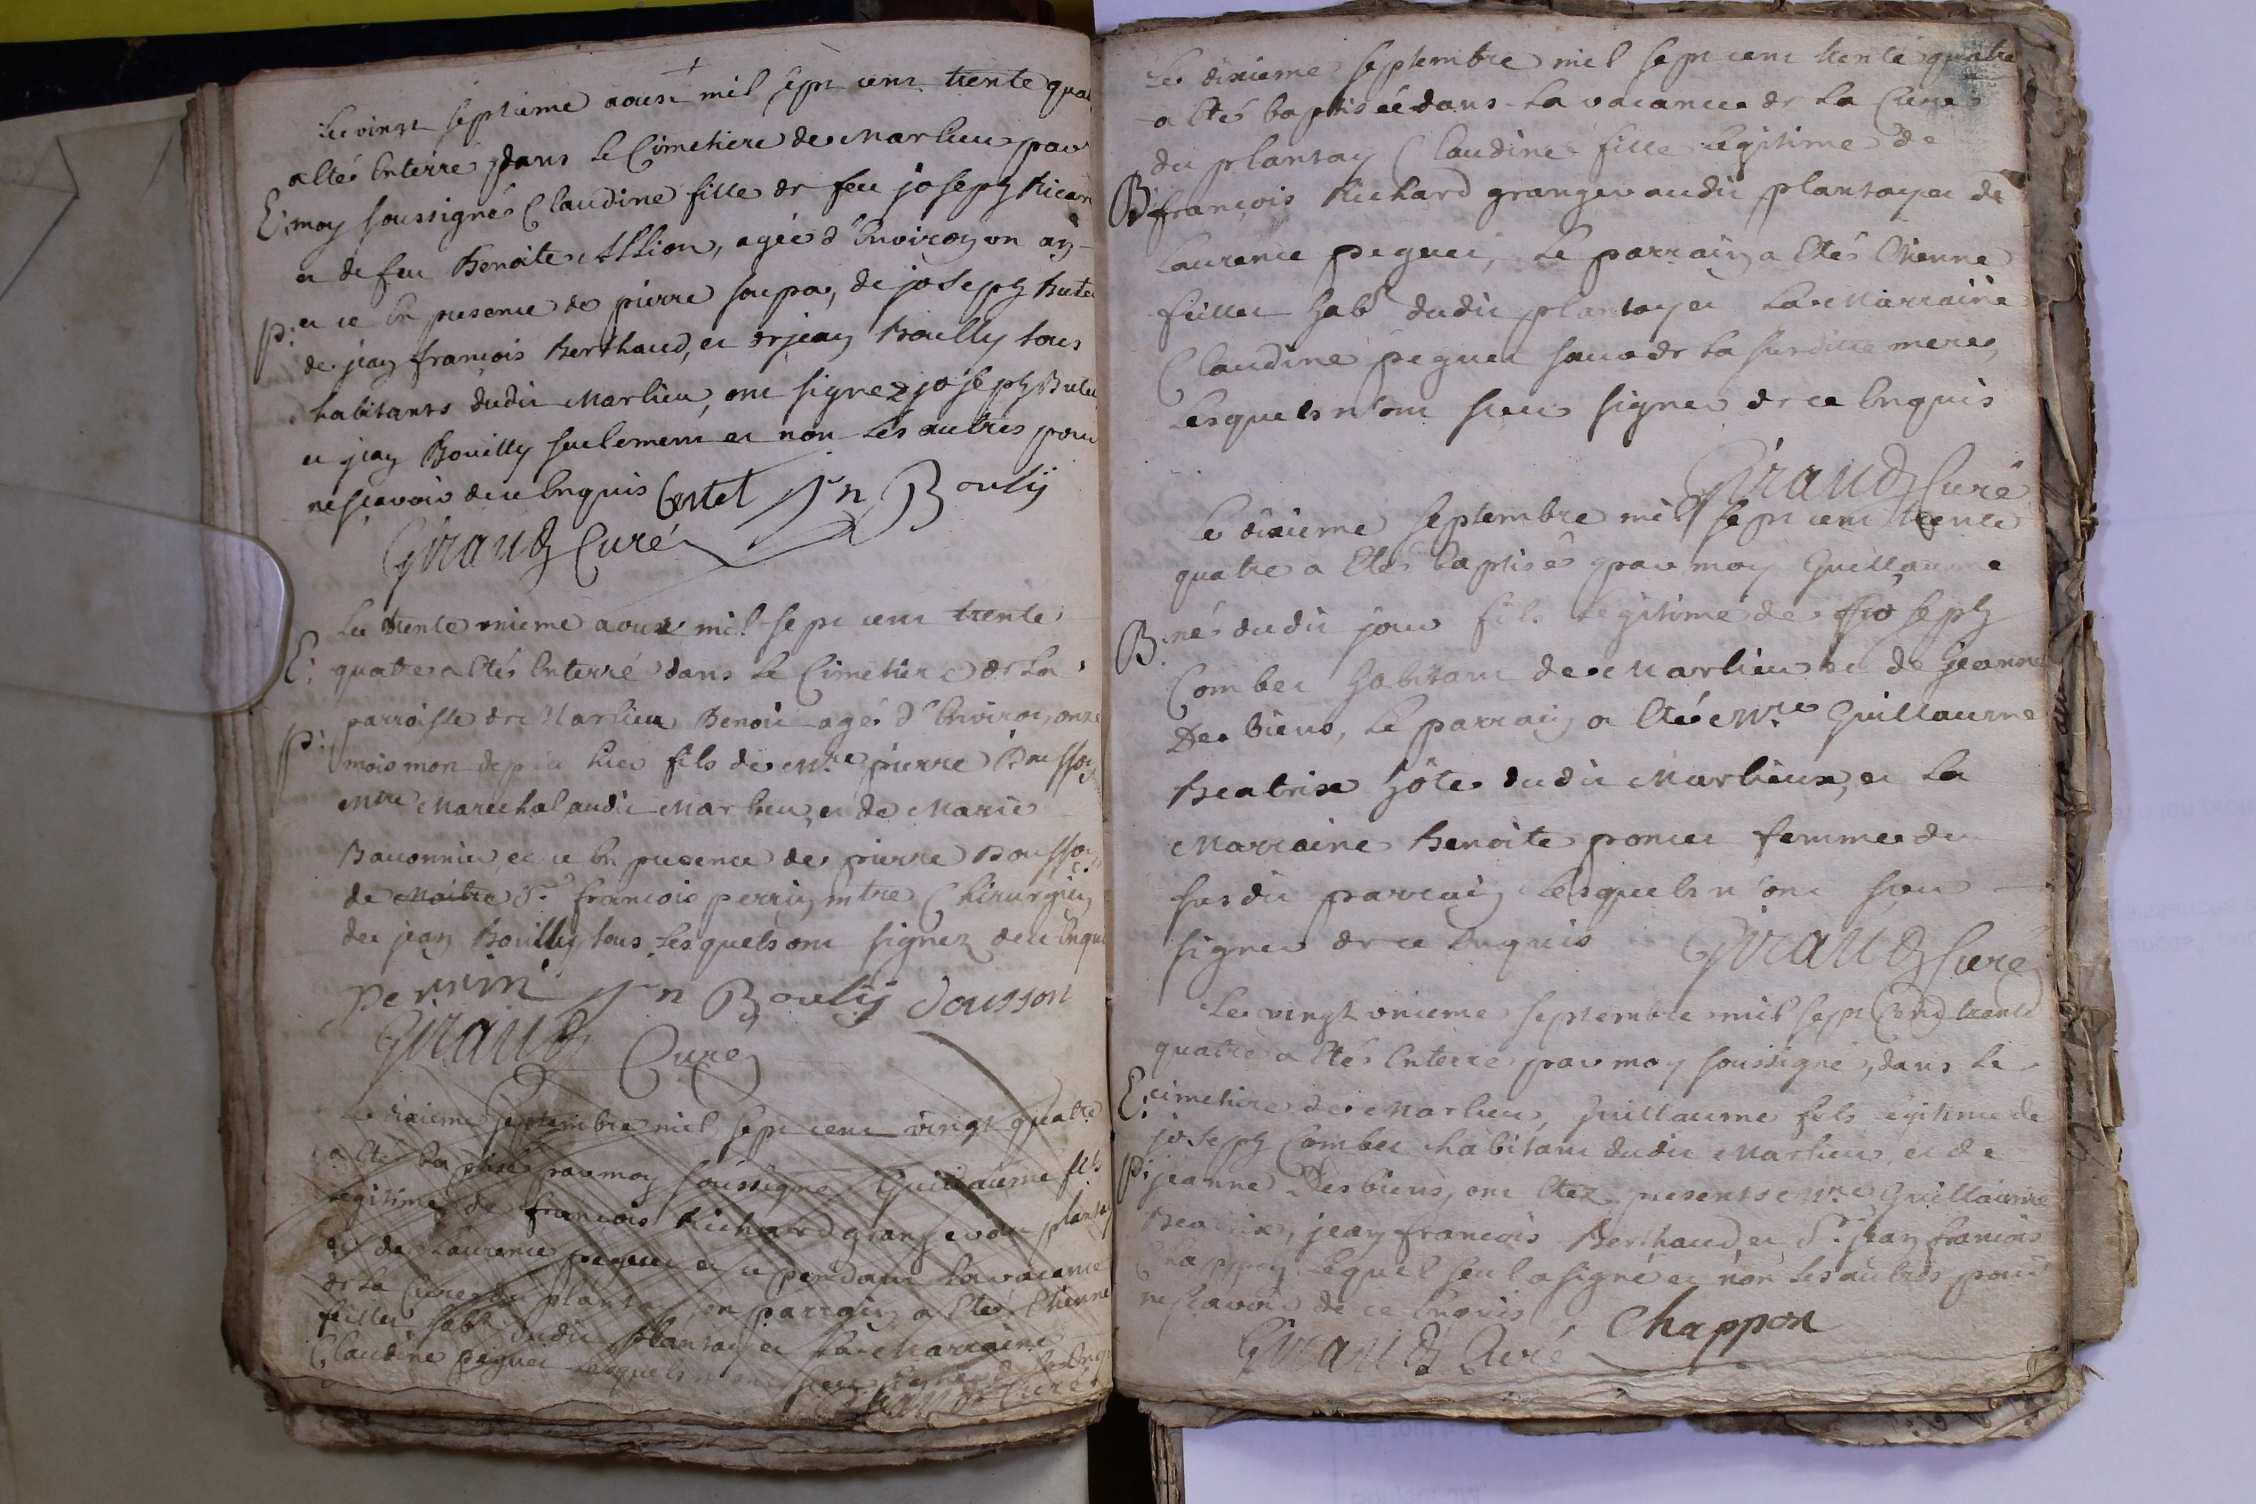 Le vingt septieme aoust mil sept cent trente quat
a eté enterré dans le Cimetiere de Marlieu par
E: moy soussigné Claudine fille de feu joseph Ricar
et de feu Benoite Allion, agée d'environ un an
P: et ce en presence de pierre soupa, de joseph
de jean françois Berthaud, et de jean Bouilly tous
habitants dudit Marlieu, ont signez joseph
et jean Bouilly seulement et non les autres pour
ne sçavoir de ce enquis Jn Boulÿ
Giraud Curé
Le trente unieme aoust mil sept cent trente
E: quatre a eté enterré dans le Cimetiere de la
parroisse de Marlieu Benoit agé d'environ onze
P: mois mort depuis hier fils de Mre pierre Bousson
Mtre Marechal audit Marlieu, et de Marie
et ce en presence de pierre Bousson
de Maitre Sr françois perrin mtre Chirurgien
de jean Bouilly tous lesquels ont signez de ce enquis
Perrin Jn Boulÿ Bousson
Giraud Curé
Le dixieme septembre mil sept cent vingt quatre
a eté baptisé par moy soussigné Guillaume fils
legitime de françois Richard granger au plantay
et de Laurence peguet et ce pendant la vacance
de la Cure du plantay son parrain a eté Etienne
feillet habt dudit plantay et la Marraine
Claudine peguet lesquels n'ont sceu signer de ce enquis
Giraud Curé
Le dixieme septembre mil sept cent trente quatre
a eté baptisée dans la vacance de la Cure
du plantay Claudine fille legitime de
B: françois Richard granger audit plantay et de
Laurence peguet, le parrain a eté Etienne
feillet habt dudit plantay et la Marraine
Claudine peguet soeur de la susditte mere,
lesquels n'ont sceu signer de ce enquis
Giraud Curé
Le dixieme septembre mil sept cent trente
quatre a eté baptisé par moy Guillaume
B: né dudit jour fils legitime de joseph
Combet habitant de Marlieu et de jeanne
Des biens, le parrain a eté Mre Guillaume
Beatrix hôte dudit Marlieux, et la
Marraine Benoite poncet femme du
susdit parrain lesquels n'ont sceu
signer de ce enquis Giraud Curé
Le vingt unieme septembre mil sept Cend trente
quatre a eté enterré par moy soussigné, dans le
E: cimetiere de Marlieu, Guillaume fils legitime de
joseph Combet habitant dudit Marlieu et de
P: jeanne Desbiens, ont etez presents Mre Guillaume
Beatrix, jean françois Berthaud, et Sr jean françois
Chappon lequel seul a signé et non les autres pour
ne sçavoir de ce enquis
Giraud Curé Chappon